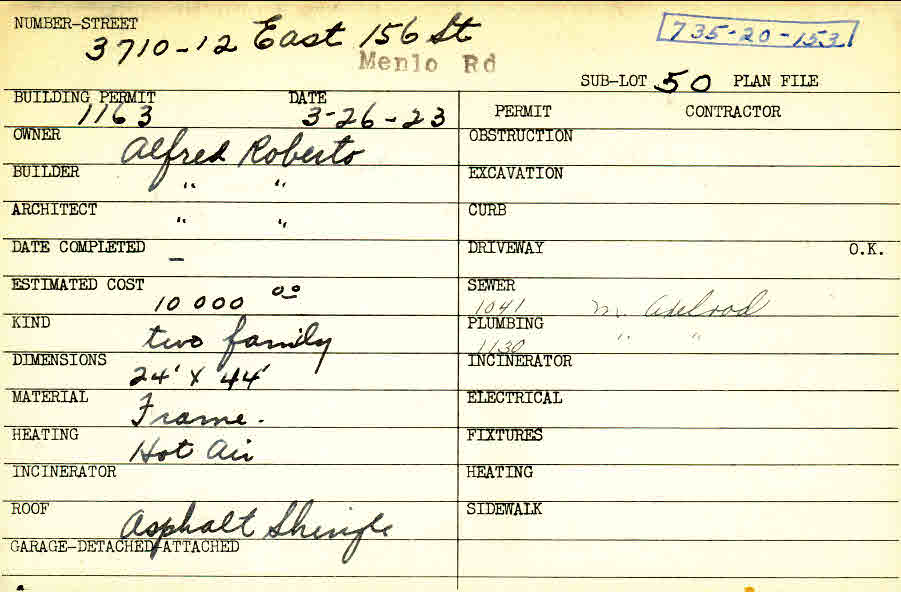 NUMBER-STREET 3710-12 East 156 St 735-20-153
Menlo Rd
SUB-LOT 50 PLAN FILE
BUILDING PERMIT DATE PERMIT CONTRACTOR
1163 3-26-23
OWNER Alfred Roberto OBSTRUCTION
BUILDER " " EXCAVATION
ARCHITECT " " CURB
DATE COMPLETED – DRIVEWAY O.K.
ESTIMATED COST 10 000 00 SEWER 1041 M. Axelrod
KIND two family PLUMBING 1130 " "
DIMENSIONS 24' X 44' INCINERATOR
MATERIAL Frame. ELECTRICAL
HEATING Hot Air FIXTURES
INCINERATOR HEATING
ROOF Asphalt Shingle SIDEWALK
GARAGE-DETACHED-ATTACHED